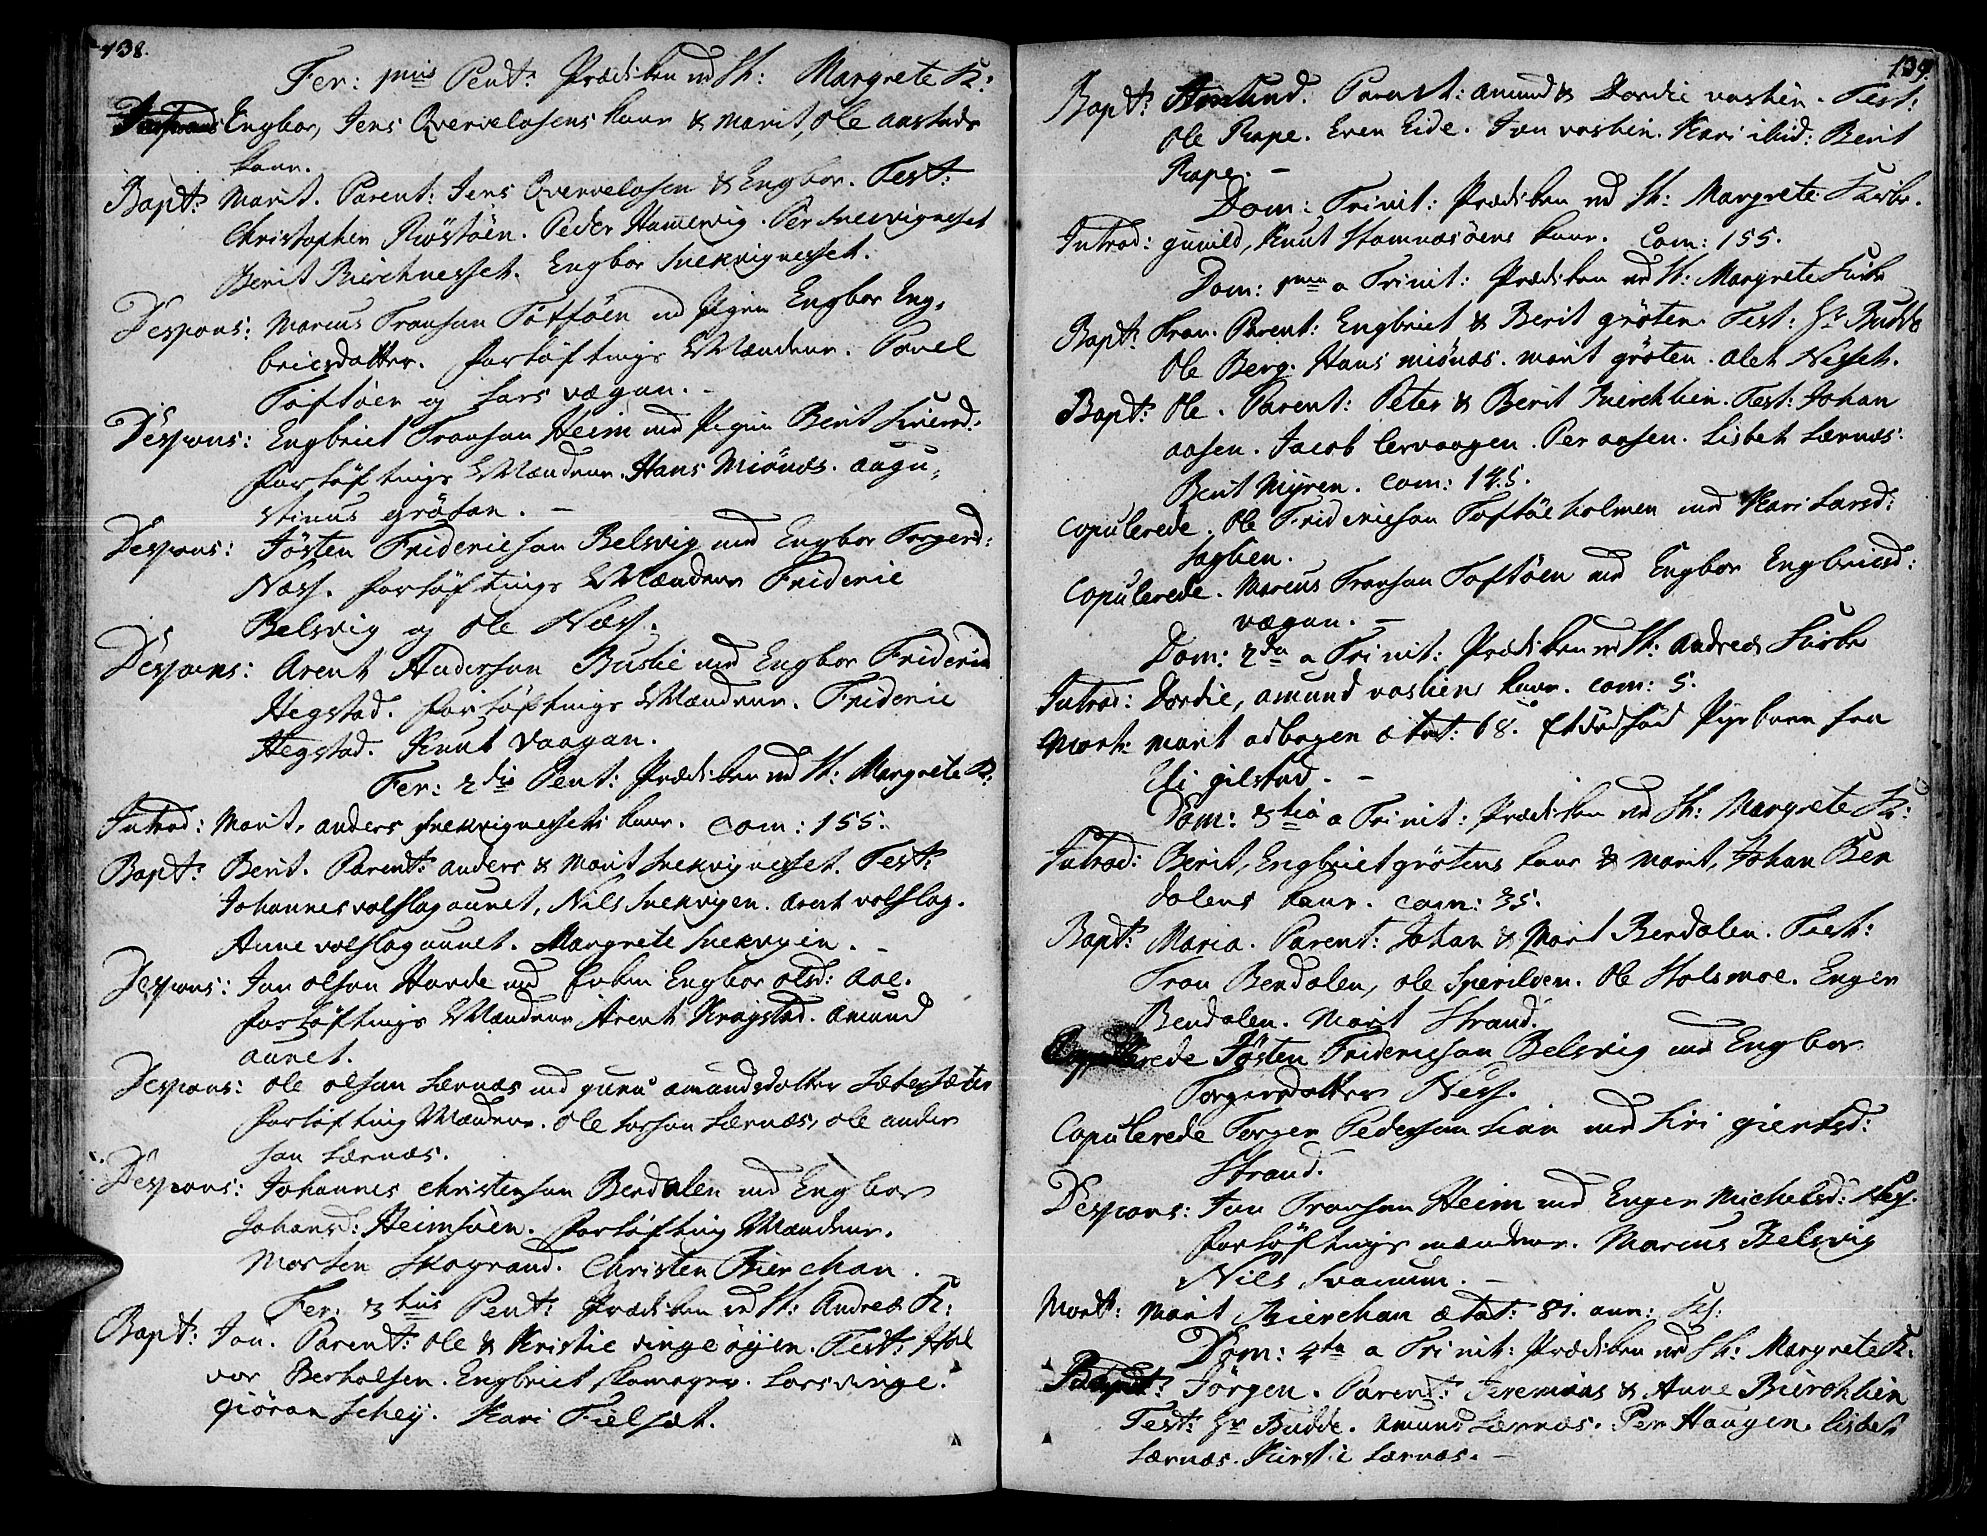 138.
Fer: 1mis Pent: Prædiken ved St: Margrete K:
Engbor, Jens Qvervelosens kone & Marit, Ole aastads
kone.
Bapt: Marit. Parent: Jens Qvervelosen & Engbor. Test:
Christopher Røstøen. Peder Hamervig. Per Snekvignesset
Berit Kirchnesset. Engbor Snekvignesset.
Despons: Marcus Transon Toftøen med Pigen Engbor Eng-
bricsdatter. forløftnings Mændene. Povel
Toftøen og Lars vægan.
Despons: Engbriet Transon Heim med Pigen Berit
forløftnings Mændene. Hans Miønæs. augu-
stinus grøtan.
Despons: Jøsten Fridericson Belsvig med Engbor Torgersd:
Næss. forløftnings Mændene Frideric
Belsvig og Ole Næss.
Despons: Arent Anderson Buslie med Engbor Fridericsd
Hegstad. forløftnings Mændene. Frideric
Hegstad. Knut Vaagan.
Fer: 2dis Pent: Prædiken ved St: Margrete K:
Introd: Marit, anders Snekvignessets kone. Com: 155.
Bapt: Berit. Parent: anders & Marit Snekvignesset. Test:
Johannes volslagaunet, Nils Snekvigen. arent volslag.
Anne volslagaunet. Margrete Snekvigen.
Despons: Jon olson Harde med Enken Engbor olsd: Aae.
forløftnings Mændene Arent Kragstad. amund
aunet.
Despons: Ole olson Lernæs med guru amundsdatter Sætersæter
forløftning Mændene. Ole Larson Lernæs, Ole ander
son Lernæs.
Despons: Johannes Christenson Berdalen med Engbor
Johansd: Heimsøen. forløftning Mændene.
Morten Skogrand. Christen Kierchan.
Fer: 3tius Pent: Prædiken ved St: Andreæ K:
Bapt: Jon. Parent: Ole & Kristie vingeøyen. Test: Hal
vor Berholsen. Engbriet Komager. Lars vinge.
giøran Schej. Kari Fielsæt.
139.
Bapt: Amund. Parent: Amund & Dordie vaslien. Test:
Ole Rape. Even Eide. Jon vaslien. Kari ibid: Berit
Rape.
Dom: Trinit: Prædiken ved St: Margrete Kirke.
Introd: gunild, Knut Stamnæsøens kone. Com: 155.
Dom: 1ma a Trinit: Prædiken ved St: Margrete Kirke
Bapt: Tron. Parent: Engbriet & Berit grøten. Test: Hr Budde
Ole Berg. Hans miønæs. marit grøten. Alet Nesset.
Bapt: Ole. Parent: Peter & Berit Kierchlien. Test: Johan
aasen. Jacob Lervaagen. Per aasen. Lisbet Lernæs.
Berit Myren. Com: 145.
Copulerede. Ole Fridericson Toftøeholmen med Kari Larsd:
Copulerede. Marcus Transon Toftøen med Engbor Engbricsd:
vægan.
Dom: 2da a Trinit: Prædiken ved St: Andreæ Kirke
Introd: Dordie, amund vasliens kone. Com: 5.
Mort: Marit odbogen ætat: 68. Et dødfød Pigebarn fra
Eli gilstad.
Dom: 3tia a Trinit: Prædiken ved St: Margrete K:
Introd: Berit, Engbriet grøtens kone & Marit, Johan Ber
dalens kone. Com: 35.
Bapt: Maria. Parent: Johan & Marit Berdalen. Test:
Tron Berdalen, Ole Sperilden. Ole Holsmoe. Enger
Berdalen. Marit Strand.
Copulerede Jøsten Fridericson Belsvig med Engbor
Torgersdatter Ness.
Copulerede Torger Pederson Lian med Siri giertsd:
Strand.
Despons: Jon Transon Heim med Enger Michelsd: Hej.
forløftnings mændene. Marcus Belsvig
Nils Svanem.
Mort: Marit Kierchan ætat: 81. ann:
Dom: 4ta a Trinit: Prædiken ved St: Margrete K:
Bapt: Jørgen. Parent: Jeremias & Anne Kierchlien
Test: Hr Budde. Amund Lernæs. Per Haugen. Lisbet
Lernæs. Kirstie Lernæs.